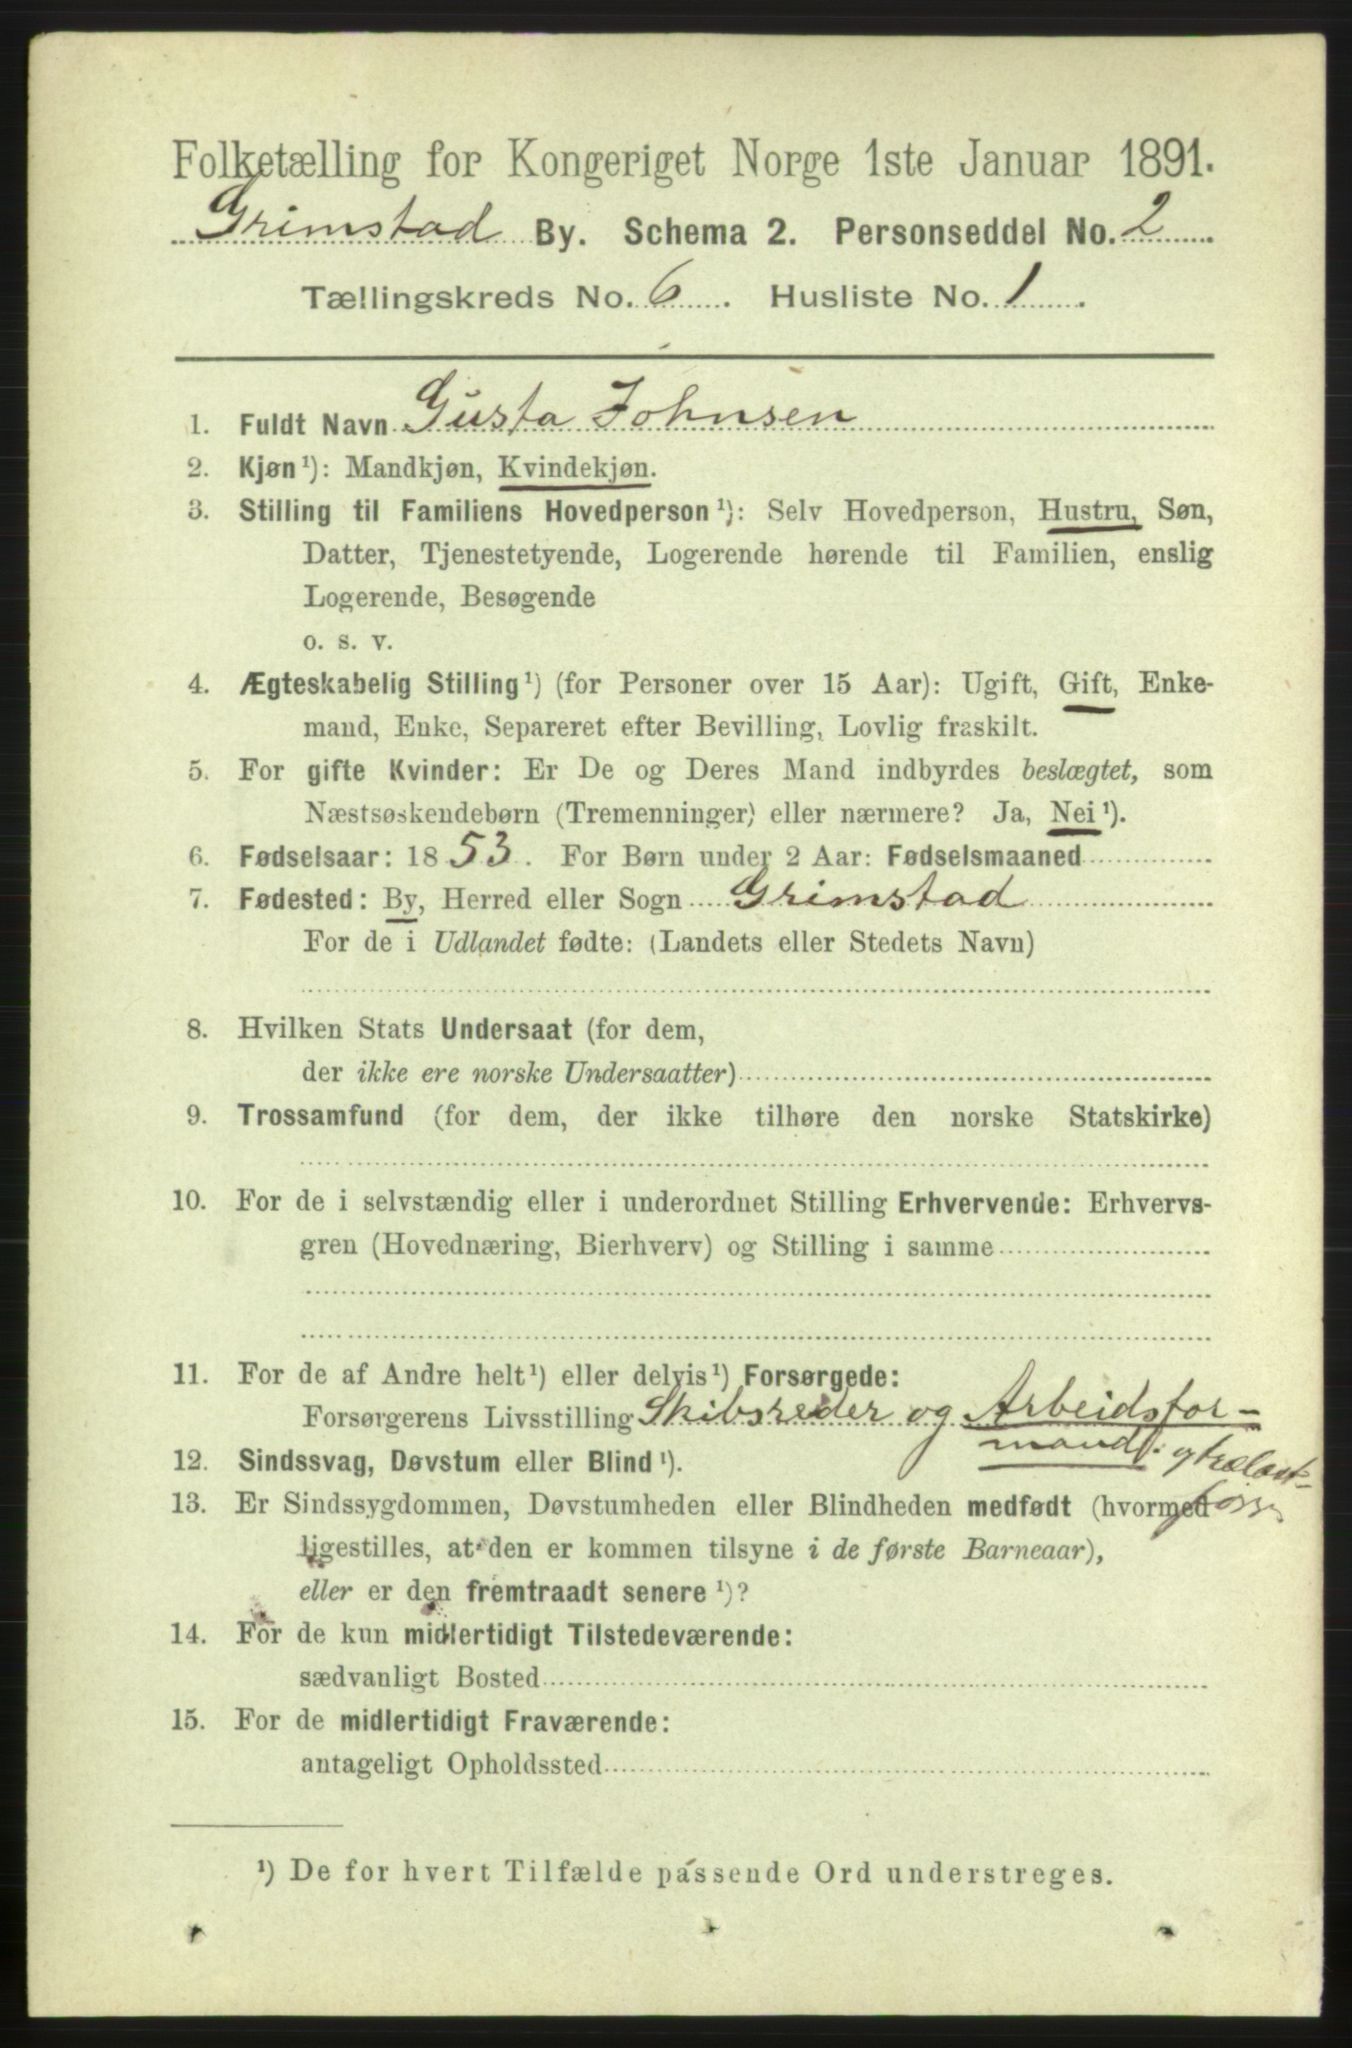 Folketælling for Kongeriget Norge 1ste Januar 1891.
Grimstad By. Schema 2. Personseddel No. 2
Tællingskreds No. 6. Husliste No. 1.
1. Fuldt Navn Gusta Johnsen
2. Kjøn ¹): Mandkjøn, Kvindekjøn.
3. Stilling til Familiens Hovedperson ¹): Selv Hovedperson, Hustru, Søn,
Datter, Tjenestetyende, Logerende hørende til Familien, enslig
Logerende, Besøgende
o. s. v.
4. Ægteskabelig Stilling ¹) (for Personer over 15 Aar): Ugift, Gift, Enke-
mand, Enke, Separeret efter Bevilling, Lovlig fraskilt.
5. For gifte Kvinder: Er De og Deres Mand indbyrdes beslægtet, som
Næstsøskendebørn (Tremenninger) eller nærmere? Ja, Nei ¹).
6. Fødselsaar: 1853. For Børn under 2 Aar: Fødselsmaaned
7. Fødested: By, Herred eller Sogn Grimstad
For de i Udlandet fødte: (Landets eller Stedets Navn)
8. Hvilken Stats Undersaat (for dem,
der ikke ere norske Undersaatter)
9. Trossamfund (for dem, der ikke tilhøre den norske Statskirke)
10. For de i selvstændig eller i underordnet Stilling Erhvervende: Erhvervs-
gren (Hovednæring, Bierhverv) og Stilling i samme
11. For de af Andre helt ¹) eller delvis ¹) Forsørgede:
Forsørgerens Livsstilling Skibsreder og Arbeidsfor-
mand.
12. Sindssvag, Døvstum eller Blind ¹).
13. Er Sindssygdommen, Døvstumheden eller Blindheden medfødt (hvormed
ligestilles, at den er kommen tilsyne i de første Barneaar),
eller er den fremtraadt senere ¹)?
14. For de kun midlertidigt Tilstedeværende:
sædvanligt Bosted
15. For de midlertidigt Fraværende:
antageligt Opholdssted
¹) De for hvert Tilfælde passende Ord understreges.